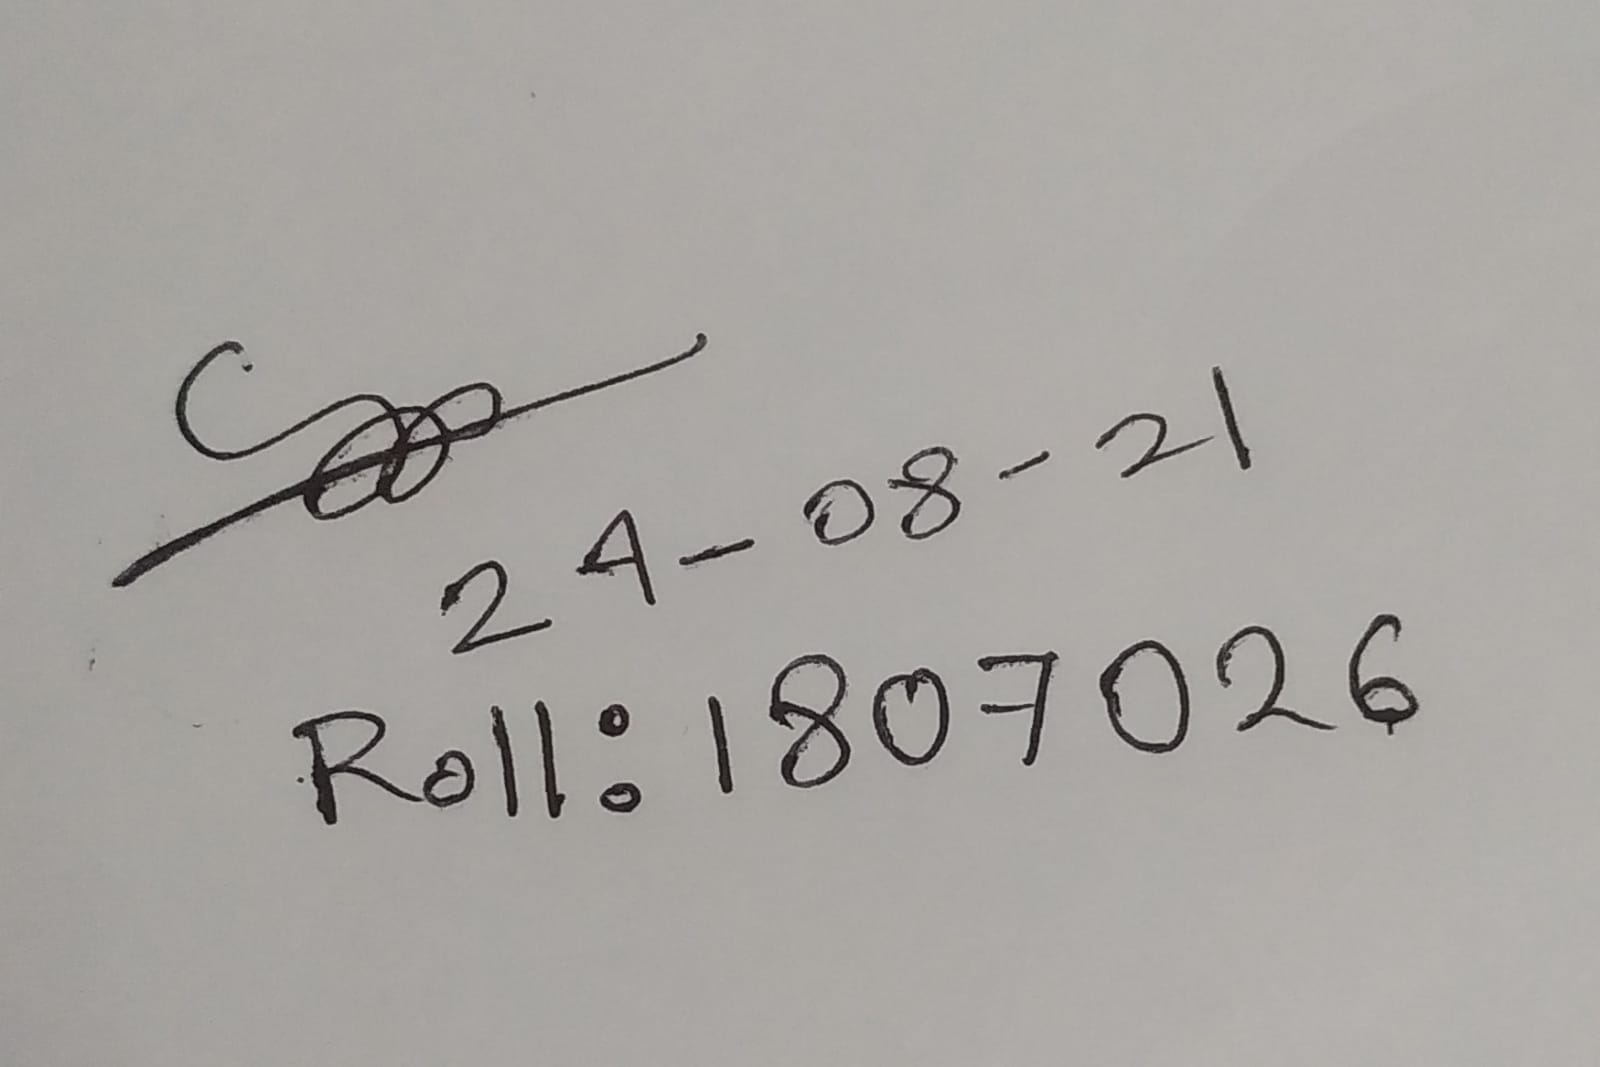 24-08-21
Roll: 1807026